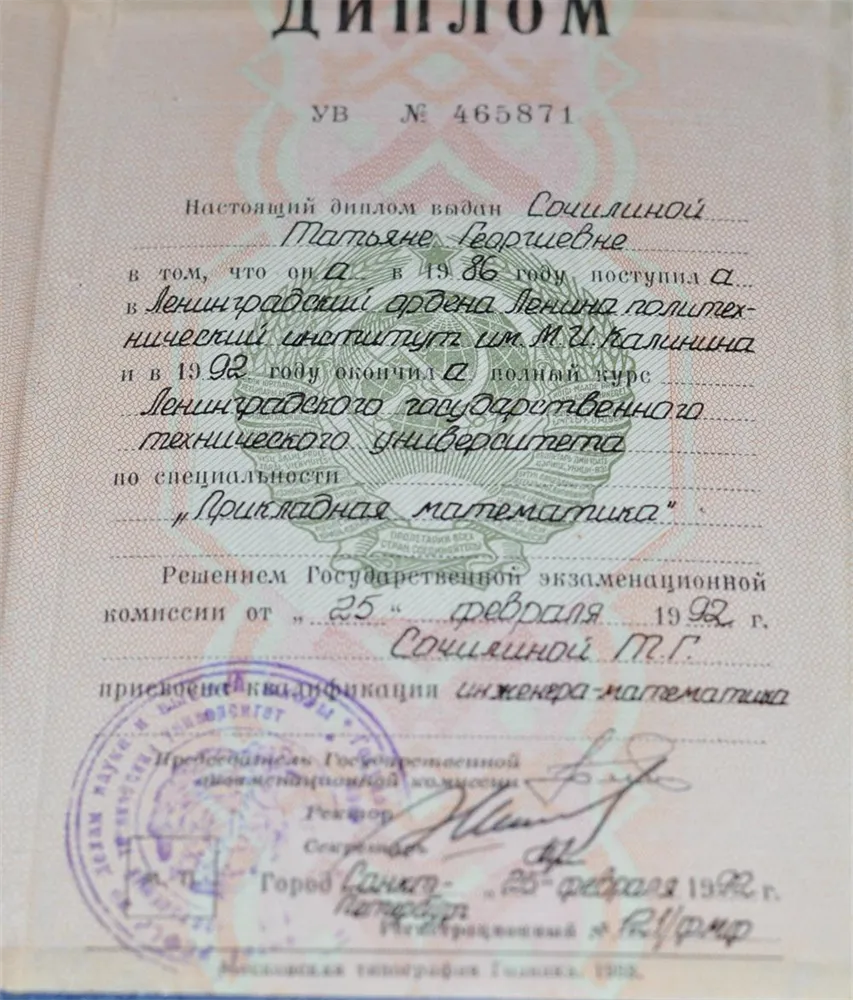 ДИПЛОМ
УВ № 465871
Настоящий диплом выдан Сочилиной
Татьяне Георгиевне
в том, что он а в 19 86 году поступил а
в Ленинградский ордена Ленина политех-
нический институт им. М.И. Калинина
и в 19 92 году окончил а полный курс
Ленинградского государственного
технического университета
по специальности
„Прикладная математика"
ПРОЛЕТАРИИ ВСЕХ
СТРАН, СОЕДИНЯЙТЕСЬ!
Решением Государственной экзаменационной
комиссии от „ 25 " февраля 19 92 г.
Сочилиной Т.Г.
присвоена квалификация инженера-математика
Председатель Государственной
экзаменационной комиссии
Ректор
Секретарь
М. П.
Город Санкт- „ 25 " февраля 19 92 г.
Петербург
Регистрационный №
Московская типография Гознака.